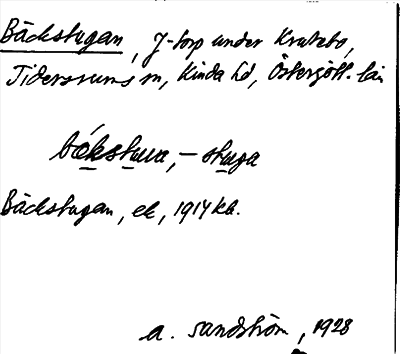 Bäckstugan, f-torp under Kratebo,
Tidersrums sn, Kinda hd, Östergötl. län
bǽkstuva, – stuga
Bäckstugan, ek, 1914 kb.
A. Sandström, 1928